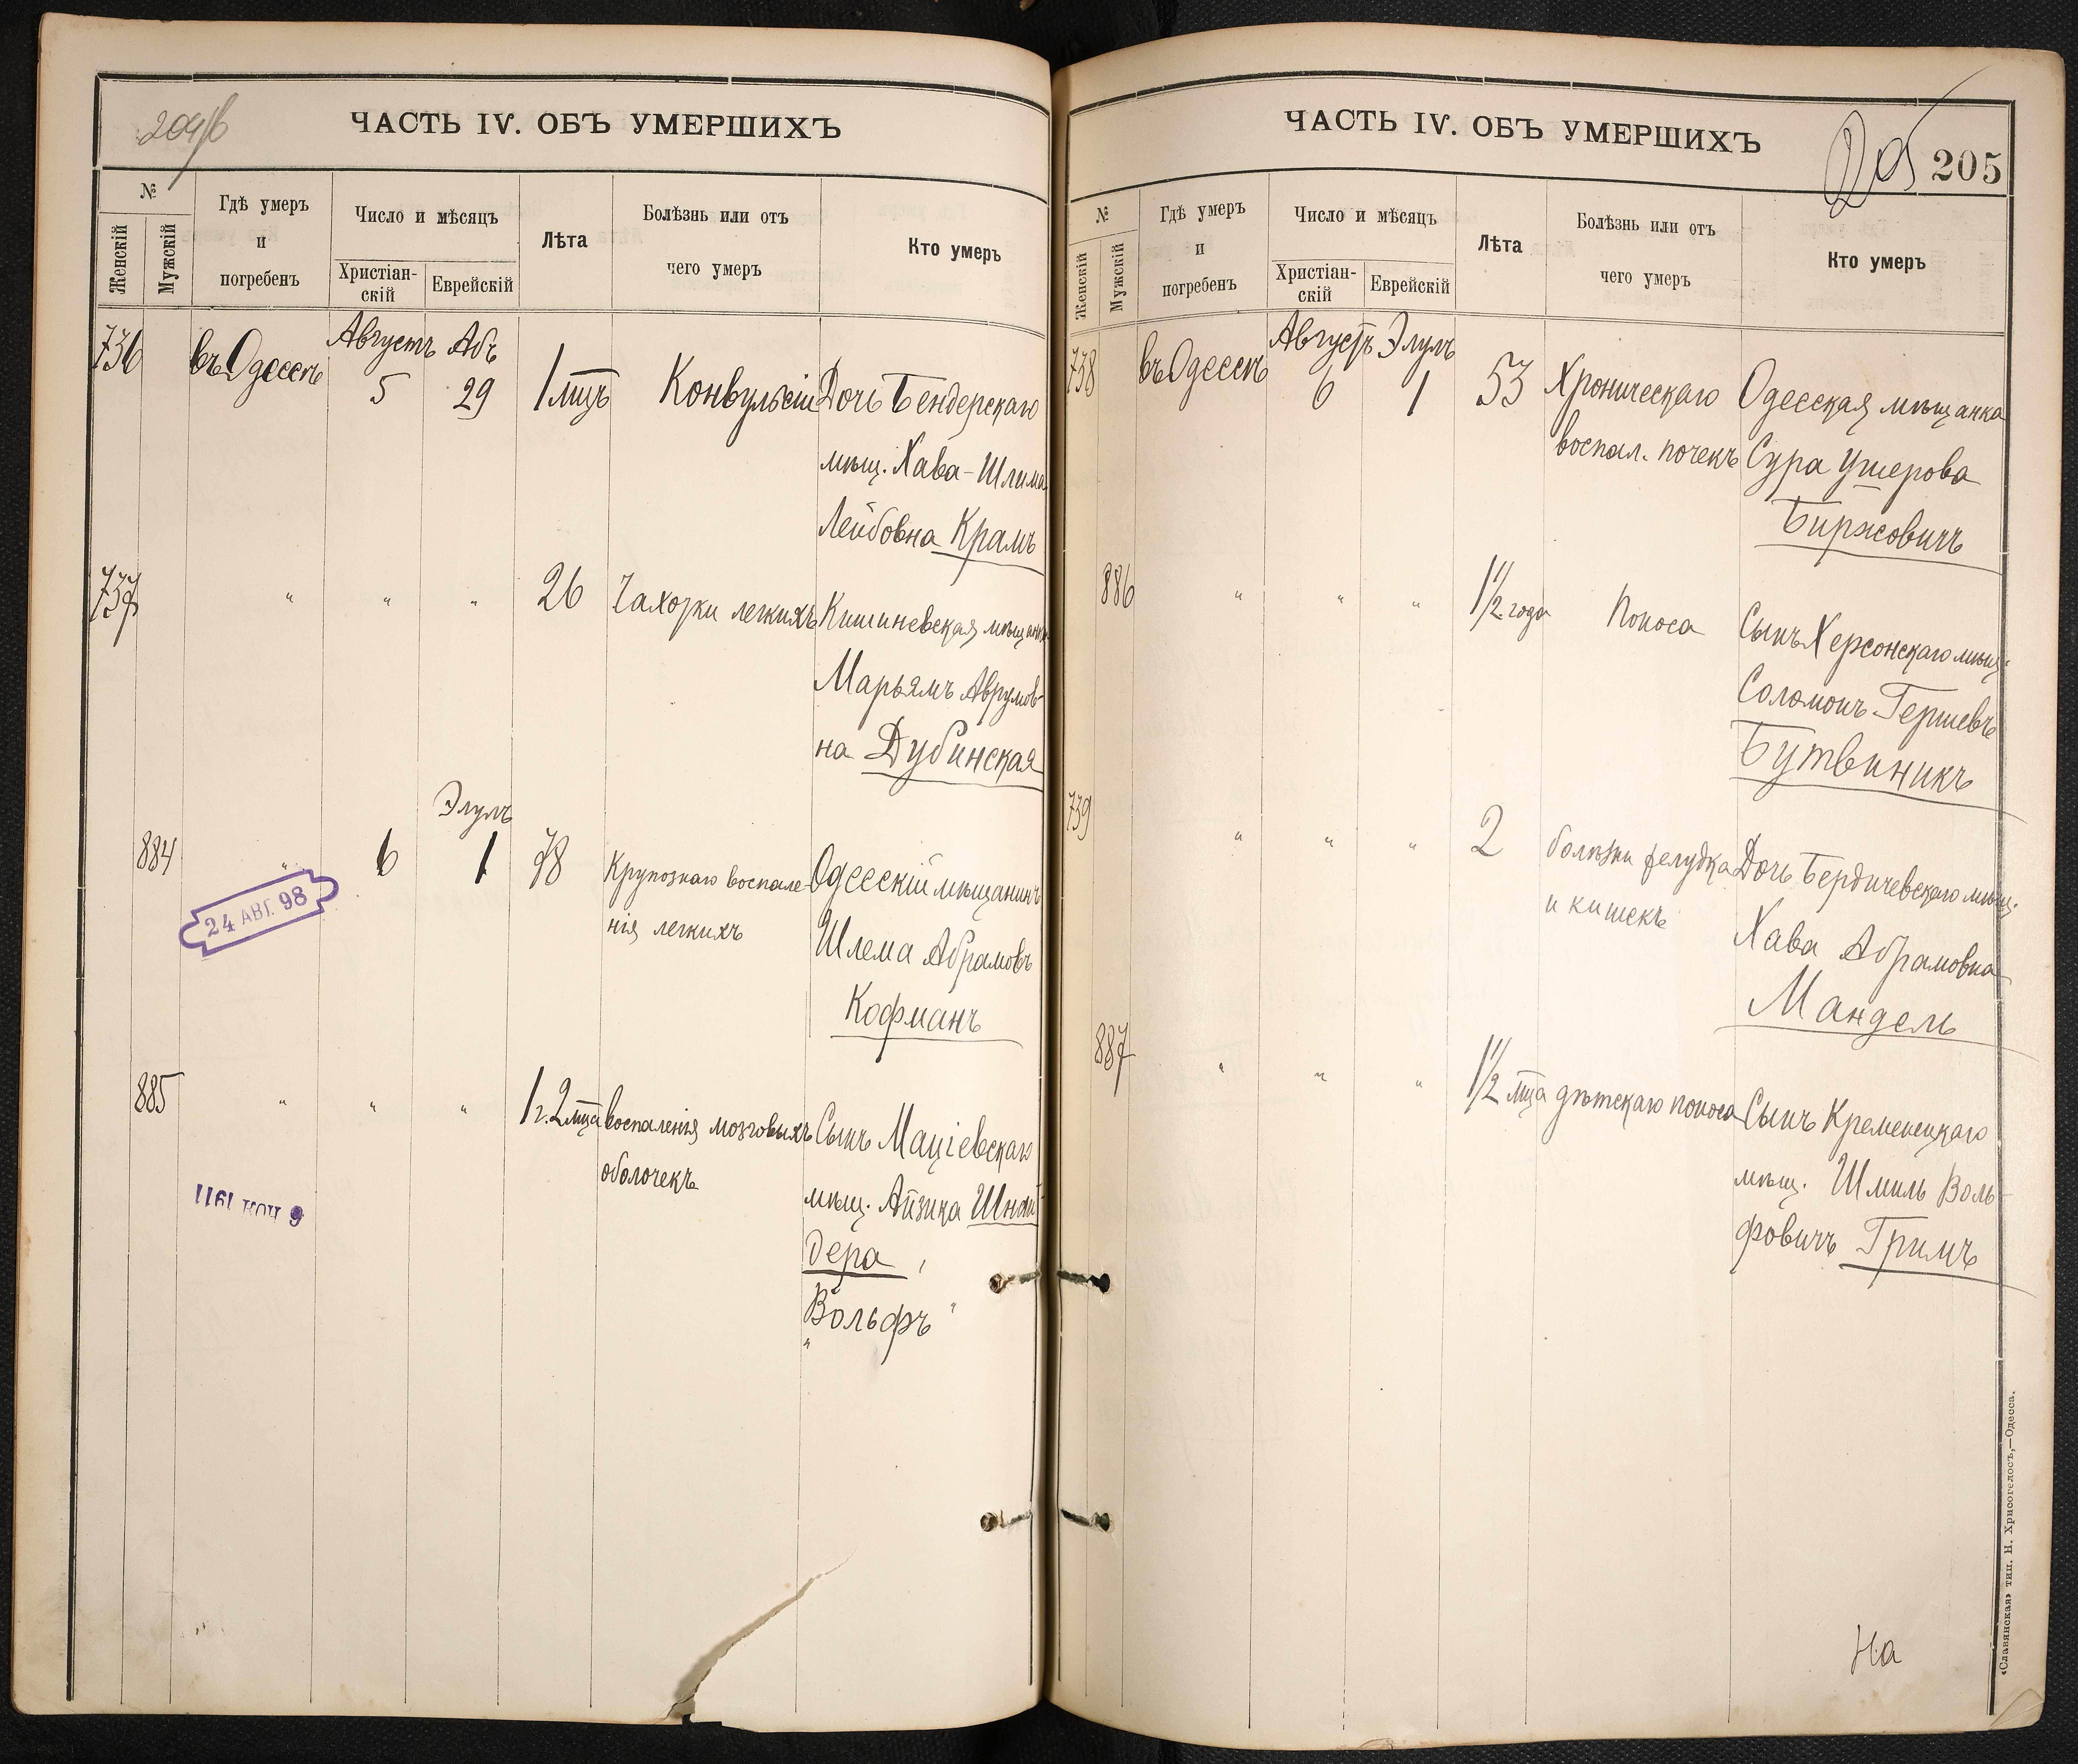 204/б
ЧАСТЬ IV. ОБЪ УМЕРШИХЪ
№
Женскій
Мужскій
Гдѣ умеръ
и
погребенъ
Число и мѣсяцъ
Христіан-
скій
Еврейскій
Лѣта
Болѣзнь или отъ
чего умеръ
Кто умеръ
Августъ Абъ
736 въ Одессѣ 5 29 1 мцъ Конвульсіи Дочь Бендерскаго
мѣщ. Хава-Шлима
Лейбовна Крамъ
737 " " " 26 Чахотки легкихъ Кишиневская мѣщанка
Марьямъ Аврумов-
на Дубинская
Элулъ
884 " 6 1 78 Крупознаго воспале- Одесскій мѣщанинъ
нія легкихъ Шлема Абрамовъ
Кофманъ
24 АВГ. 98
885 " " " 1 г. 2 мца воспаленія мозговыхъ Сынъ Маціевскаго
оболочекъ мѣщ. Айзика Шнай-
дера,
"Вольфъ"
6 НОЯ 1911
ЧАСТЬ IV. ОБЪ УМЕРШИХЪ
205 205
№
Женскій
Мужскій
Гдѣ умеръ
и
погребенъ
Число и мѣсяцъ
Христіан-
скій
Еврейскій
Лѣта
Болѣзнь или отъ
чего умеръ
Кто умеръ
Августъ Элулъ
738 въ Одессѣ 6 1 53 Хроническаго Одесская мѣщанка
воспал. почекъ Сура Ушерова
Биржовичъ
886 " " " 1 1/2 года Поноса Сынъ Херсонскаго мѣщ.
Соломонъ Гершевъ
Бутвиникъ
739 " " " 2 болѣзни желудка Дочь Бердичевскаго мѣщ.
и кишекъ Хава Абрамовна
Мандель
887 " " " 1 1/2 мца дѣтскаго поноса Сынъ Кременецкаго
мѣщ. Шмиль Воль-
фовичъ Гримъ
На
«Славянская» тип. Н. Хрисогелосъ,—Одесса.